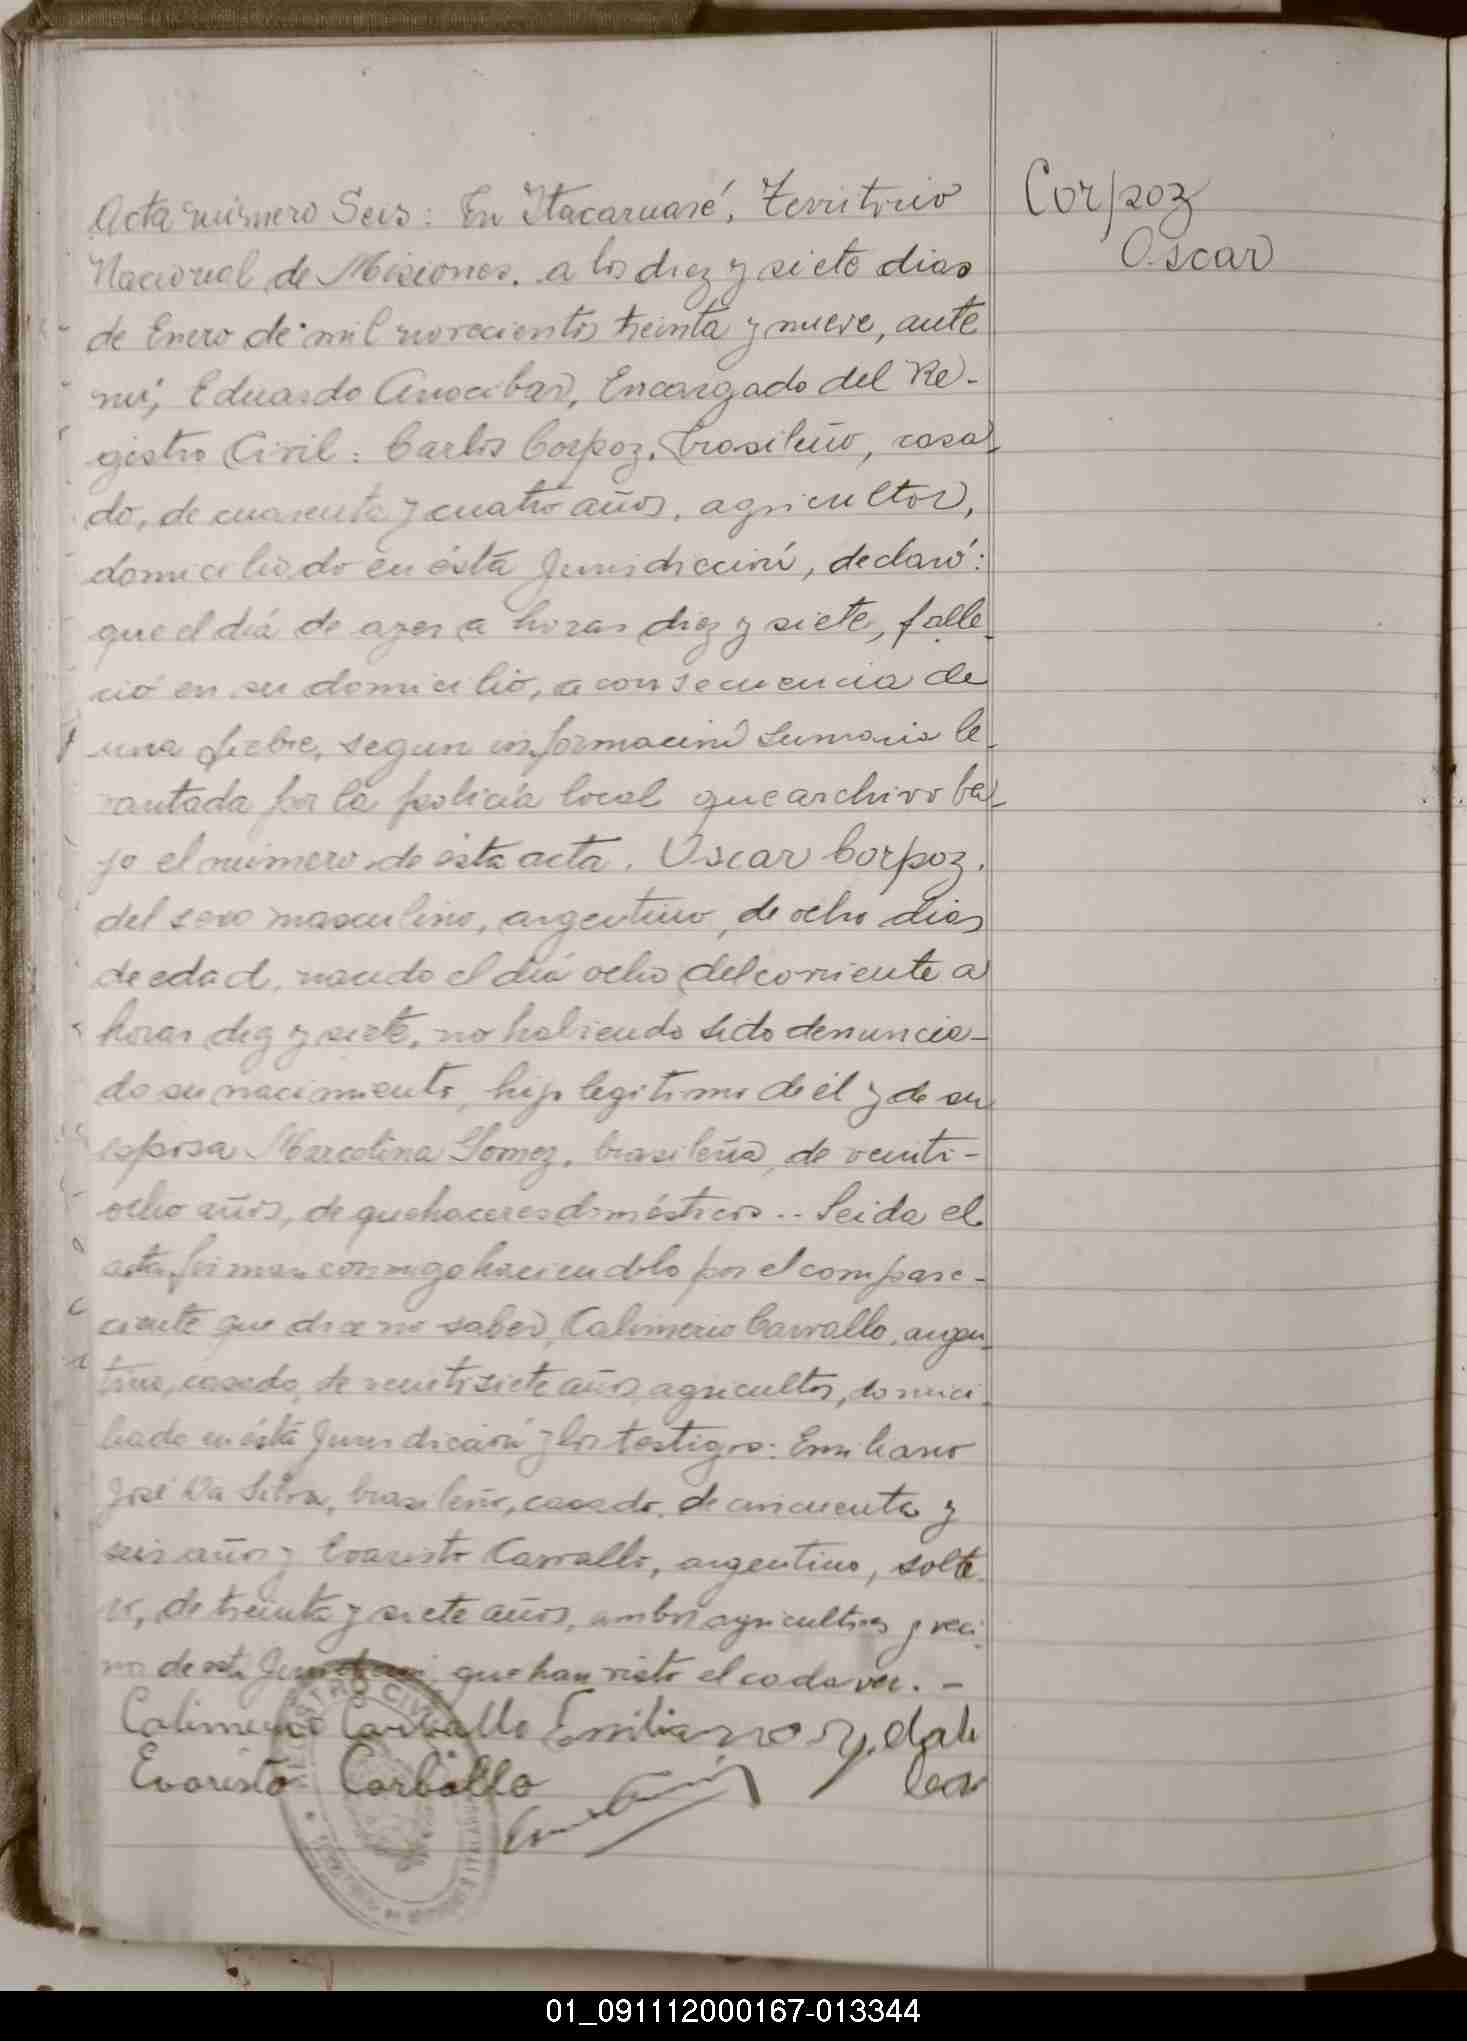 Acta número Seis: En Itacaruaré, Territorio
Nacional de Misiones, a los diez y siete dias
de Enero de mil novecientos treinta y nueve, ante
mi, Eduardo Anocibar, Encargado del Re-
gistro Civil: Carlos Corpoz, brasileño, casa-
do, de cuarenta y cuatro años, agricultor,
domiciliado en ésta Jurisdicción, declaró:
que el diá de ayer a horas diez y siete, falle-
ció en su domicilio, a consecuencia de
una fiebre, segun información sumaria le-
vantada por la policia local que archivo ba-
jo el número de ésta acta. Oscar Corpoz,
del sexo masculino, argentino, de ocho dias
de edad, nacido el diá ocho del corriente a
horas diez y siete, no habiendo sido denuncia-
do su nacimiento, hijo legitimo de él y de su
esposa Marcolina Gomez, brasileña, de veinti-
ocho años, de quehaceres domésticos.. Leida el
acta, firman conmigo haciendolo por el compare-
ciente que dice no saber, Calimerio Carvallo, argen-
tino, casado, de veintisiete años, agricultor, domici-
liado en ésta Jurisdicción y los testigos: Emiliano
José Da Silva, brasileño, casado, de cincuenta y
seis años y Evaristo Carvallo, argentino, solte-
ro, de treinta y siete años, ambos agricultores y veci-
nos de esta Jurisdicción, que han visto el cadaver. -
Calimerio Carballo Emiliano J. da
Evaristo Carballo
Corpoz
Oscar
REGISTRO CIVIL
01_091112000167-013344